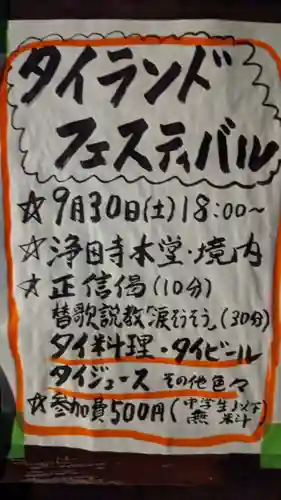 タイランド
フェスティバル
☆9月30日(土)18:00～
☆浄因寺本堂・境内
☆正信偈(10分)
替歌説教 涙そうそう(30分)
タイ料理・タイビール
タイジュース その他色々
☆参加費500円(中学生以下無料)